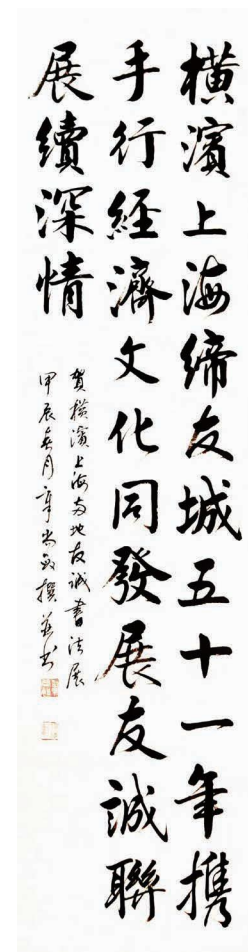 橫濱上海締友城五十一年携
手行經濟文化同發展友誠聯
展續深情
賀橫濱上海両地友誠書法展
甲辰春月章
撰並书